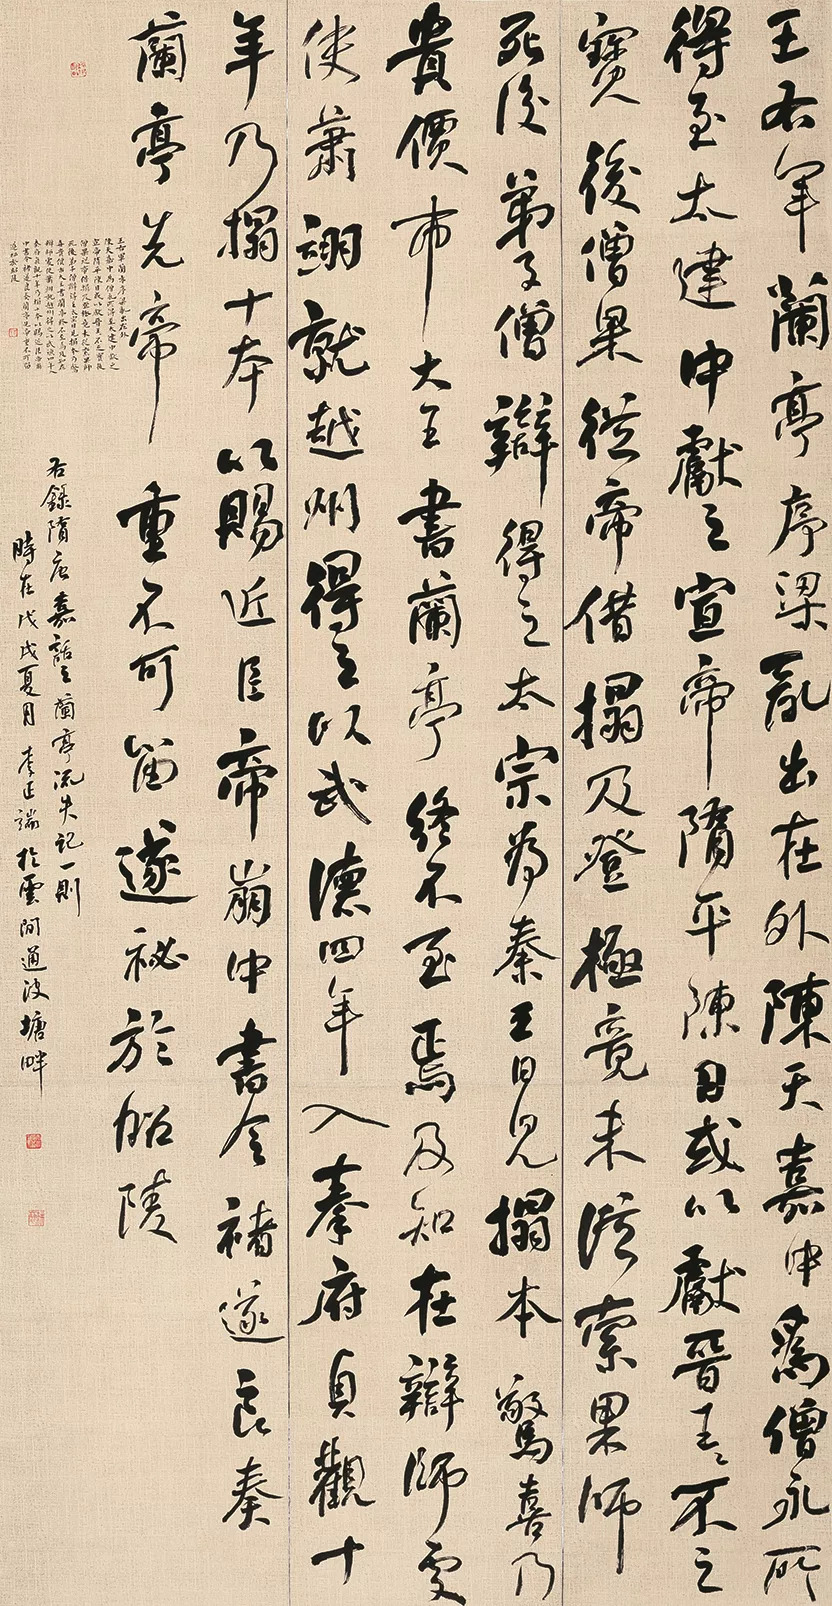 王右軍蘭亭序梁亂出在外陳天嘉中為僧永所
得至太建中獻之宣帝隋平陳日或以獻晉王王不之
寶後僧果從帝借搨及登極竟未從索果師
死後弟子僧辯得之太宗為秦王日見搨本驚喜乃
貴價市大王書蘭亭終不至焉及知在辯師處
使蕭翊就越州得之以武德四年入秦府貞觀十
年乃搨十本以賜近臣帝崩中書令褚遂良奏
蘭亭先帝重不可留遂秘於昭陵
右錄隋唐嘉話之蘭亭流失記一則
時在戊戌夏月李正端於雲間通波塘畔